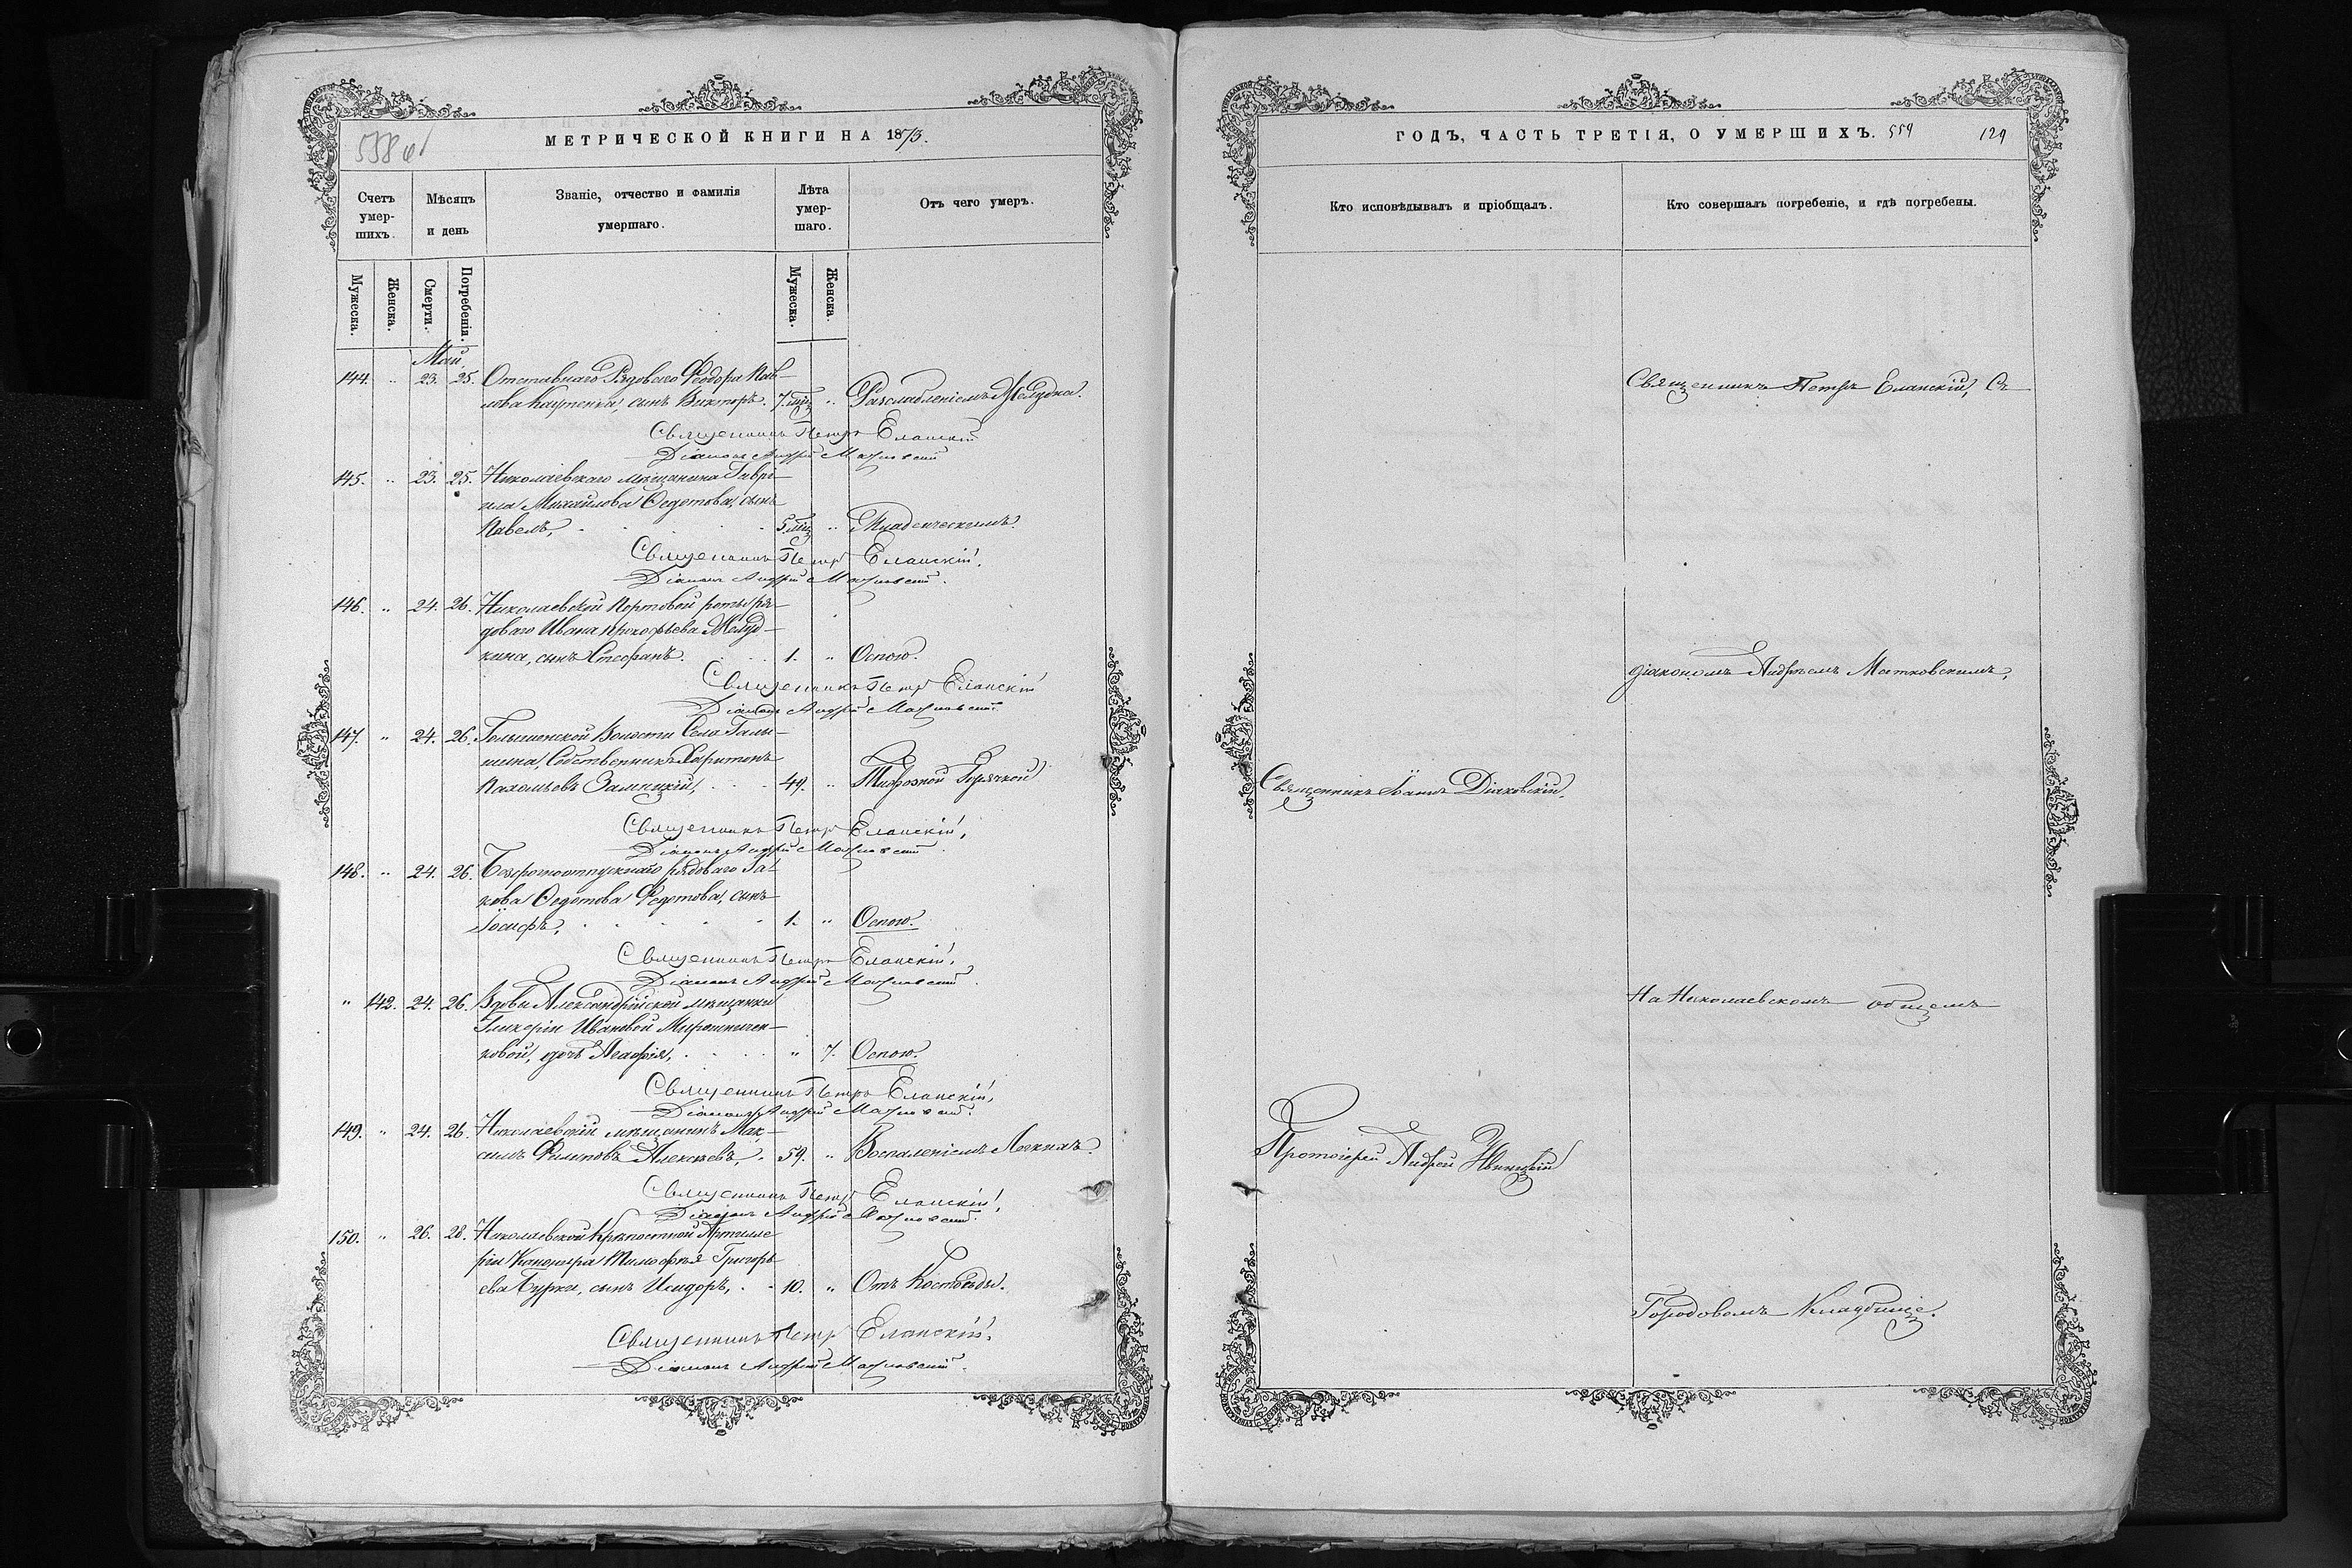 МЕТРИЧЕСКОЙ КНИГИ НА 1873.
Счетъ умер-шихъ.
Мѣсяцъ и день
Званіе, отчество и фамилія умершаго.
Лѣта умер-шаго.
Отъ чего умеръ.
Мужеска. Женска. Смерти. Погребенія. Мужеска. Женска.
Май
144. " 23. 25. Отставнаго Рядоваго Ѳеодора Пав-
лова сынъ Викторъ. 7. мѣц " Разслабленіемъ Желудка.
Священникъ Петръ Еланскій
Діаконъ Андрей Матковскій
145. " 23. 25. Николаевскаго мѣщанина Гаврі-
ила Михайлова Ѳедотова, сынъ
Павелъ, 5 мѣц " Младенческимъ.
Священникъ Петръ Еланскій,
Діаконъ Андрей Матковскій.
146. " 24. 26. Николаевской Портовой роты ря-
доваго Ивана Прокофьева Желуд-
кина, сынъ Стефанъ. 1. " Оспою.
Священникъ Петръ Еланскій
Діаконъ Андрей Матковскій
147. " 24. 26. Волости Села
Собственникъ Харитонъ
49. " Тифозной Горячкой
Священникъ Петръ Еланскій,
Діаконъ Андрей Матковскій.
148. " 24. 26. Безсрочноотпускнаго рядоваго Іа-
кова Ѳедотова Ѳедотова, сынъ
Іосифъ, 1. " Оспою.
Священникъ Петръ Еланскій,
Діаконъ Андрей Матковскій.
" 142. 24. 26. Вдовы Александрійской мѣщанки
Гликеріи Ивановой Мирошничен-
ковой, дочь Агафія, " 7. Оспою.
Священникъ Петръ Еланскій,
Діаконъ Андрей Матковскій.
149. " 24. 26. Николаевскій мѣщанинъ Мак-
симъ Филиповъ Алексѣевъ, 59. " Воспаленіемъ Легкихъ.
Священникъ Петръ Еланскій,
Діаконъ Андрей Матковскій.
150. " 26. 28. Николаевской Крѣпостной Артилле
ріи Канонира Тимофѣя Григорь
ева Бурки, сынъ Исидоръ, 10. " Отъ Костоѣды.
Священникъ Петръ Еланскій,
Діаконъ Андрей Матковскій.
ГОДЪ, ЧАСТЬ ТРЕТІЯ, О УМЕРШИХЪ. 559 129
Кто исповѣдывалъ и пріобщалъ.
Кто совершалъ погребеніе, и гдѣ погребены.
Священникъ Петръ Еланскій, Съ
діакономъ Андреемъ Матковскимъ,
Священникъ Іоаннъ Діаковскій.
На Николаевскомъ общемъ
Протоіерей Андрей
Городовомъ Кладбищѣ.